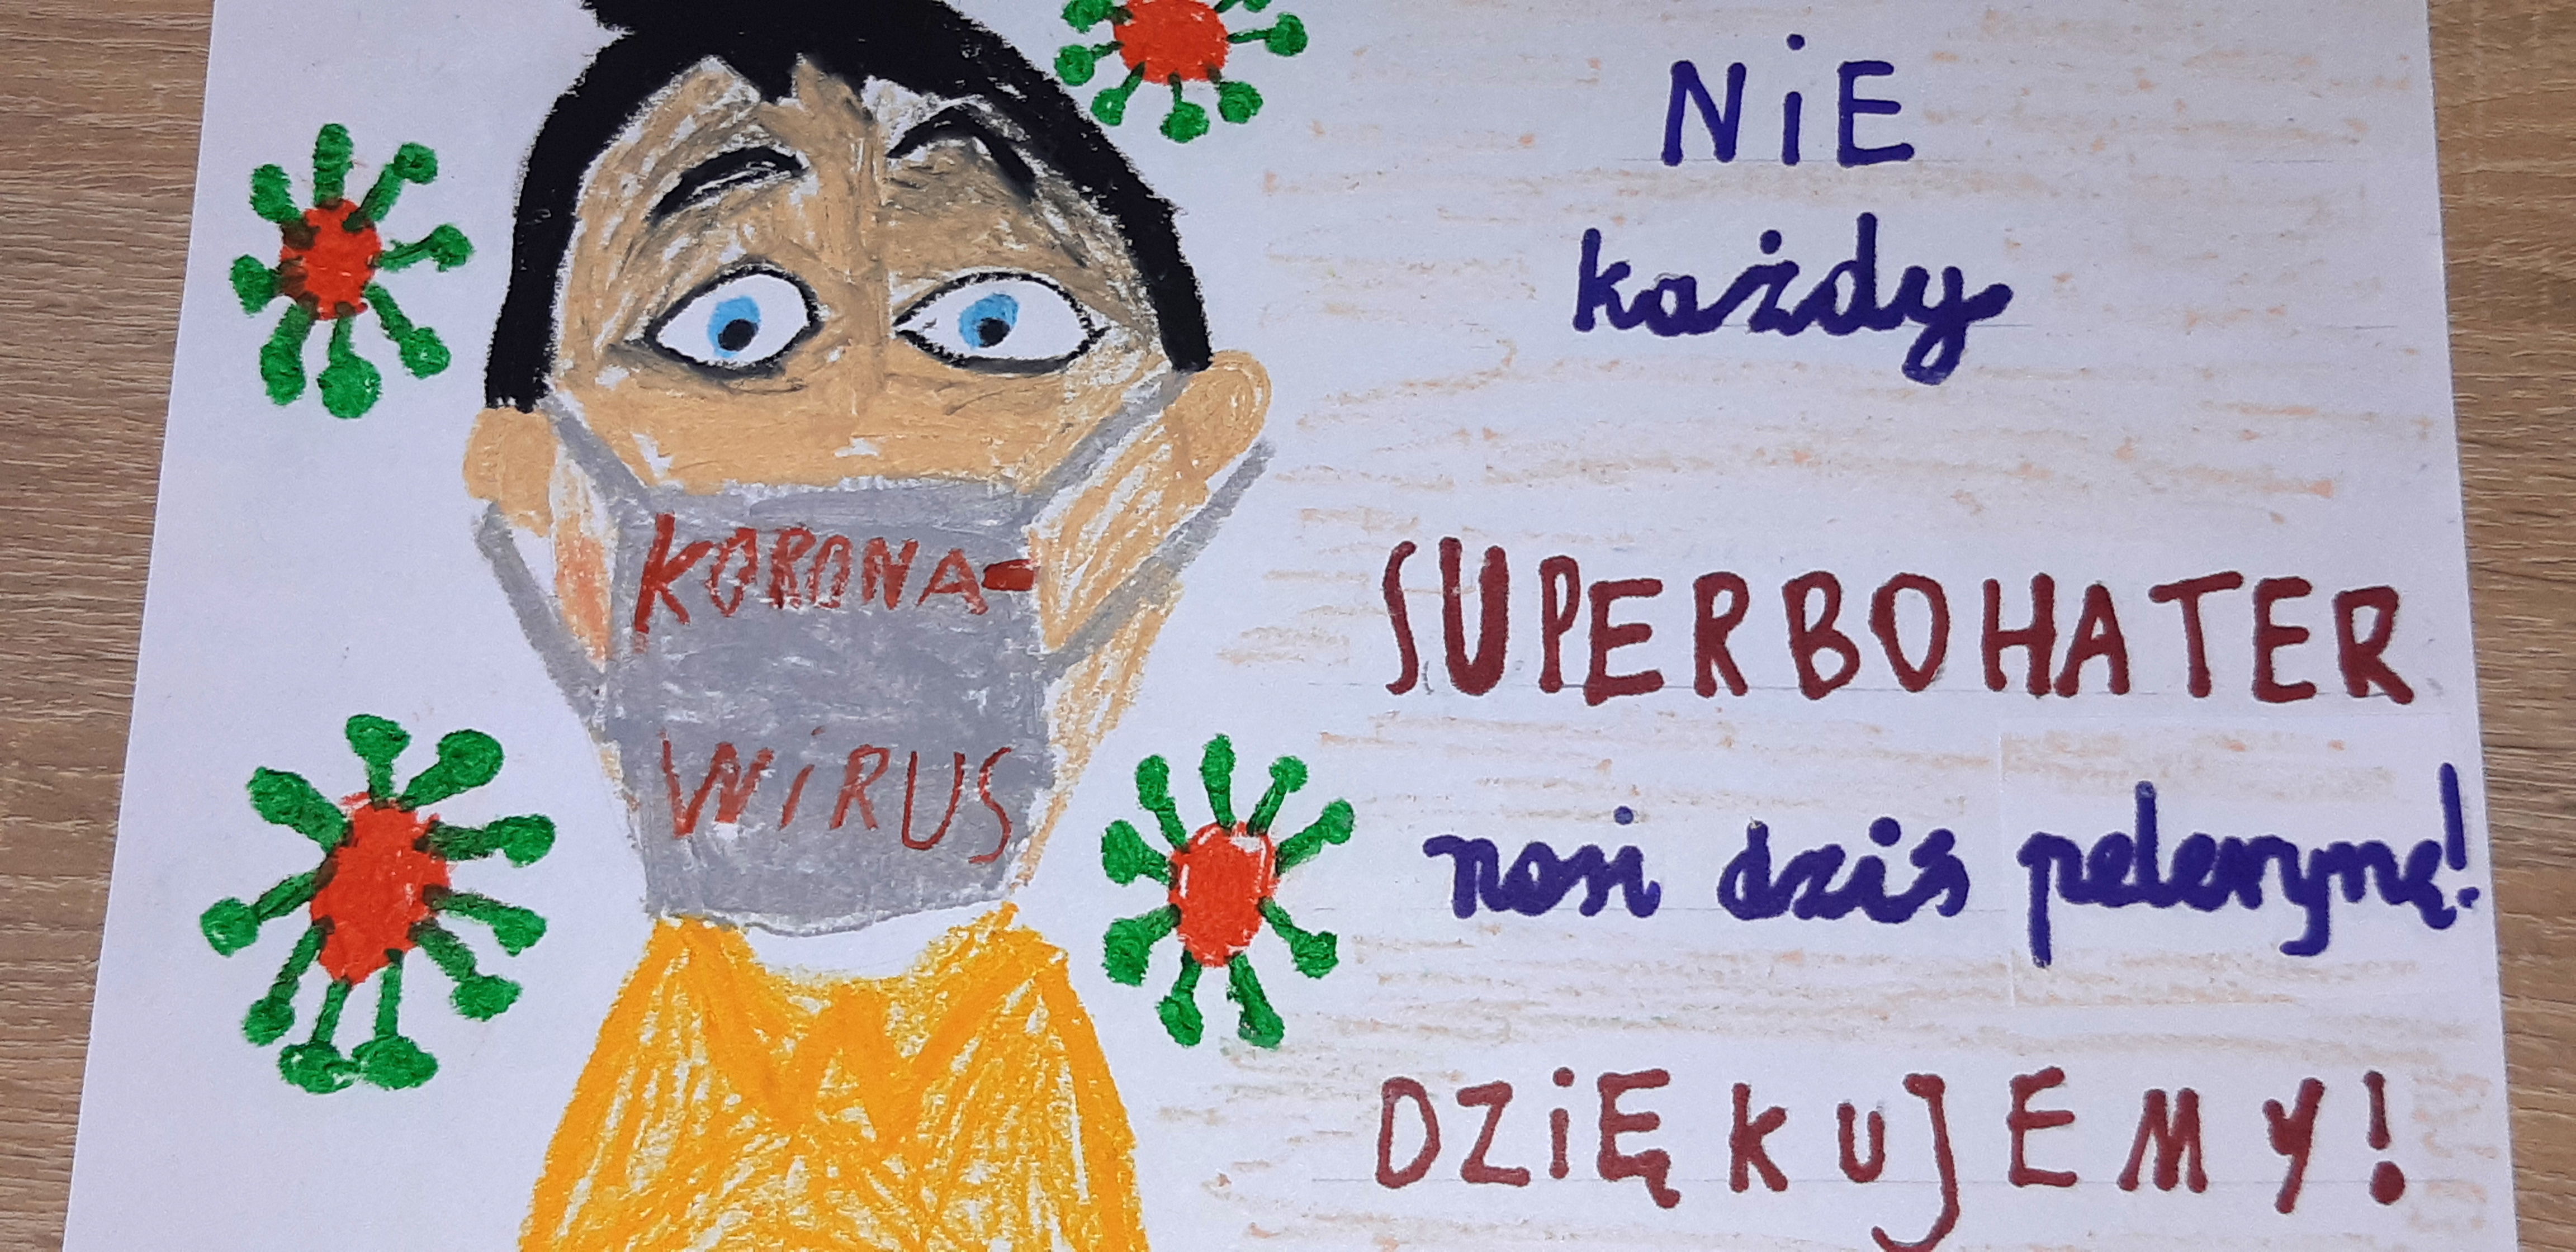 KORONA-
WiRUS
NiE
każdy
SUPERBOHATER
nosi dziś pelerynę!
DZiĘKUJEMY!